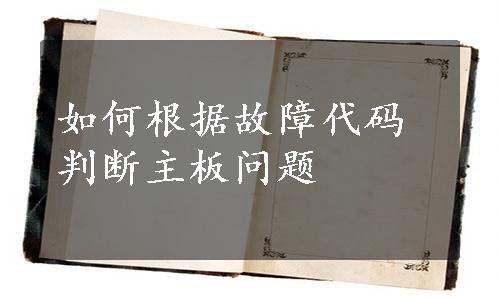 如何根据故障代码
判断主板问题